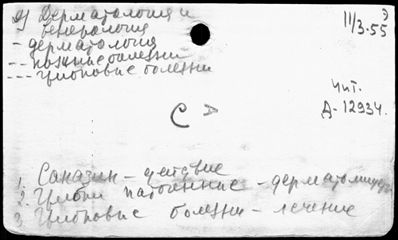 д) Дерматология и
венерология
- дерматология
-- кожные болезни
--- грибковые болезни
11/3-55
Э
Чит.
Д-12934.
С А
1. Саназин - действие
2. Грибки патогенные - дерматомицеты
3. Грибковые болезни - лечение